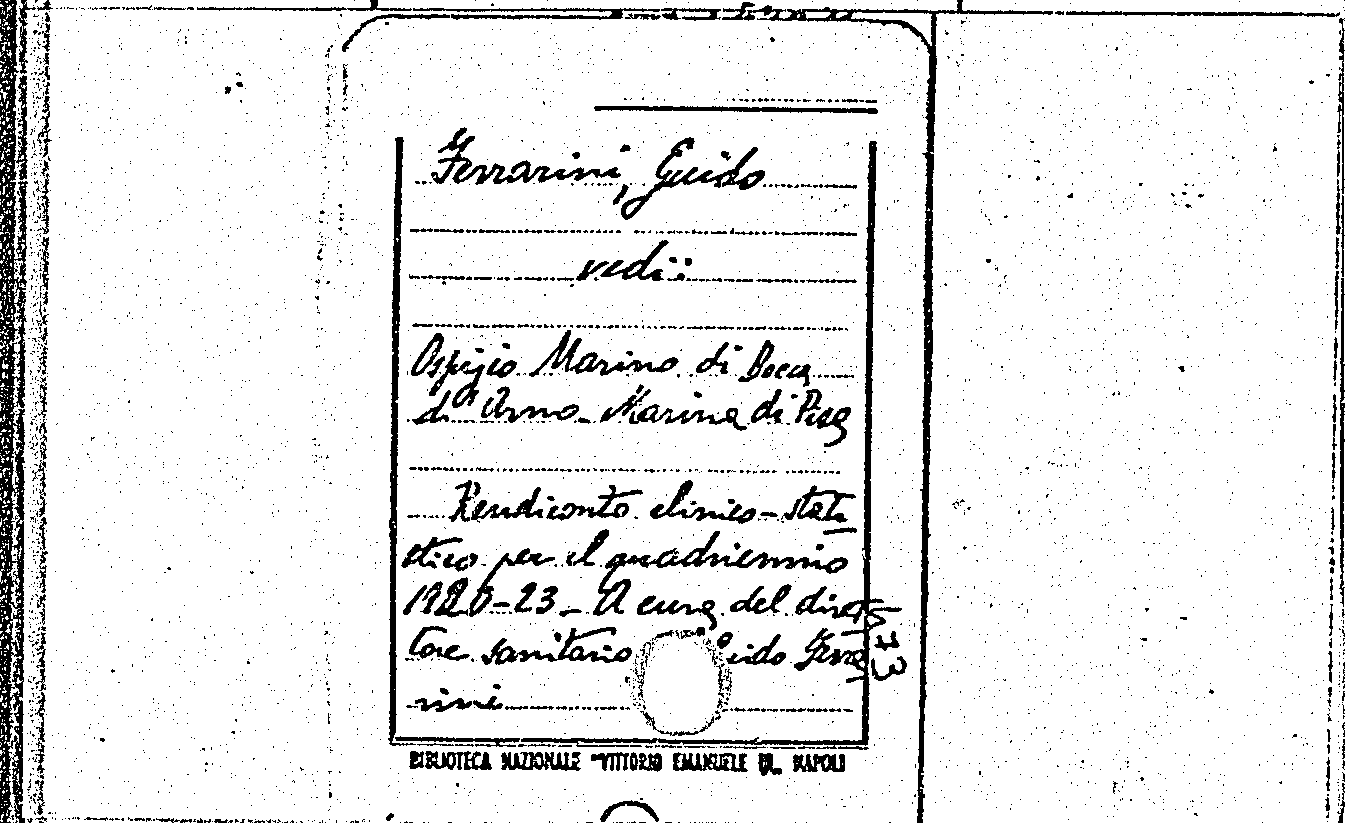 Ferrarini, Guido
vedi:
Ospizio Marino di Bocca
d'Arno. Marina di Pisa
Rendiconto clinico-stati
stico per il quadriennio
1920-23_ A cura del diret
tore sanitario Guido Ferra
rini
BIBLIOTECA NAZIONALE "VITTORIO EMANUELE III" NAPOLI